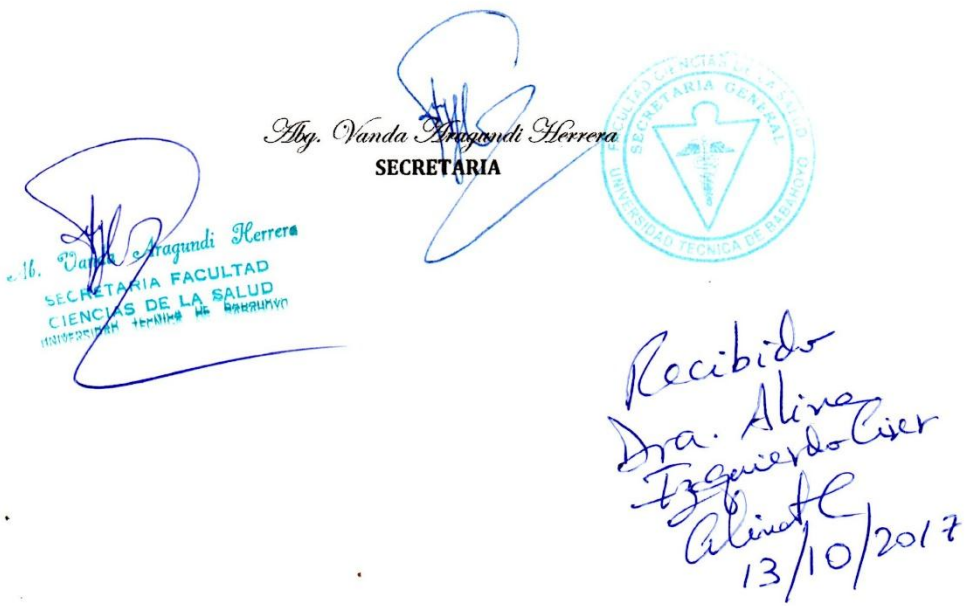 Abg. Vanda Aragundi Herrera
SECRETARIA
FACULTAD CIENCIAS DE LA SALUD
SECRETARIA GENERAL
UNIVERSIDAD TECNICA DE BABAHOYO
Ab. Vanda Aragundi Herrera
SECRETARIA FACULTAD
CIENCIAS DE LA SALUD
UNIVERSIDAD TECNICA DE BABAHOYO
Recibido
Dra. Alina
Izquierdo Cirer
13/10/2017